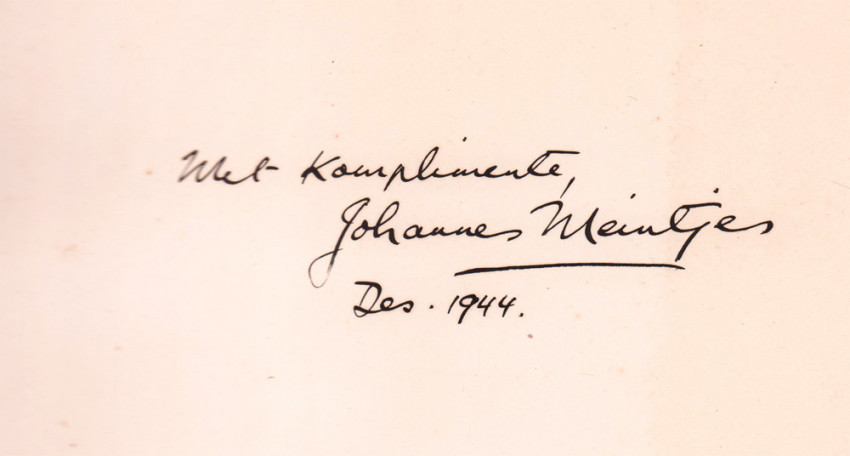 Met Komplimente,
Johannes Meintjes
Des. 1944.